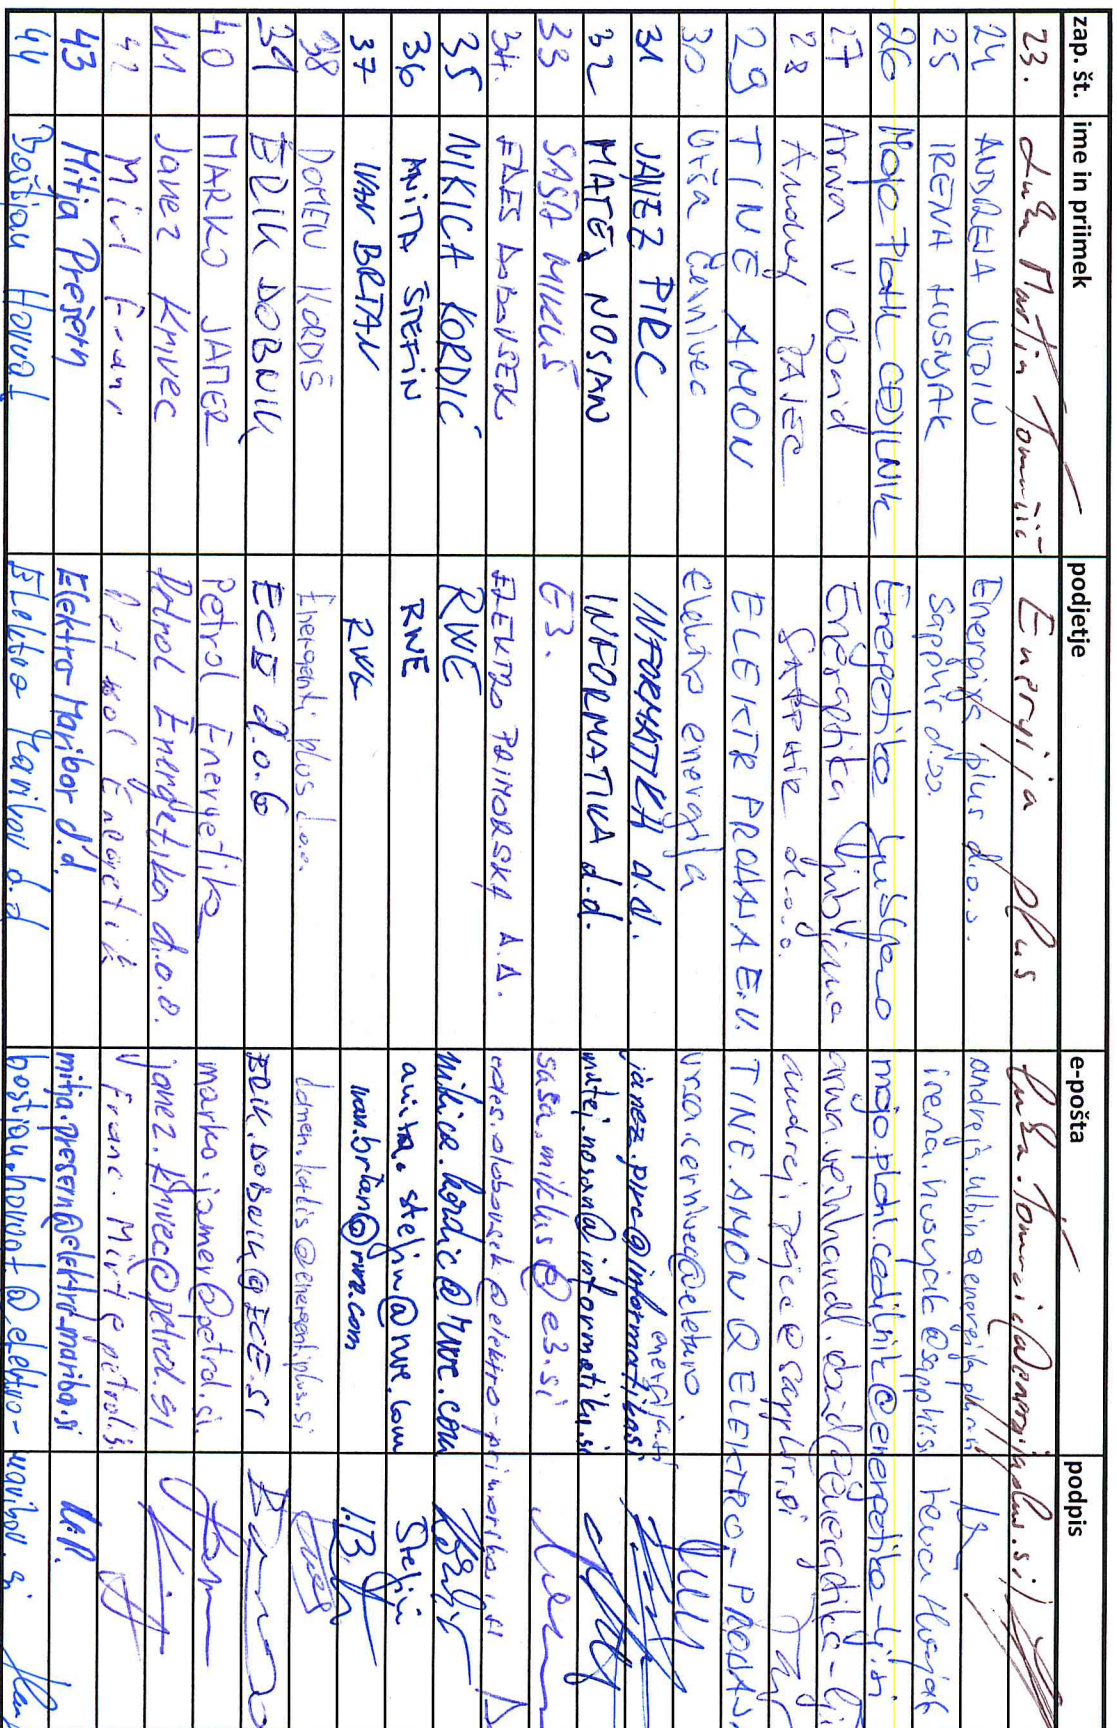 zap. št. ime in priimek podjetje e-pošta podpis
23. Luka Martin Tomažič Energija plus luka.tomazic@energijaplus.si
24 ANDREJA URBIN Energija plus d.o.o.
25 IRENA HUSNJAK Sapphir d.o.o. irena.husnjak@sapphir.si Irena Husnjak
26 Mojca CEDILNIK Energetika Ljubljana
27 Energetika Ljubljana
28 Andrej ZAJEC d.o.o. andrej.zajec@sapphir.si
29 TINE AMON ELEKTR PRODAJA E.U. TINE.AMON @ ELEKTRO-PRODAJA.
30 Urša Černivec Elektro energija ursa.cernivec@elektro.energija.si
31 JANEZ PIRC INFORMATIKA d.d. janez.pirc@informatika.si
32 MATEJ NOSAN INFORMATIKA d.d. matej.nosan@informatika.si
33 SAŠA MIKUŠ E3. sasa.mikus@e3.si
34. ELEKTRO PRIMORSKA d.d.
35 NIKICA KORDIĆ RWE nikica.kordic@rwe.com
36 ANITA ŠTEFIN RWE anita.stefin@rwe.com Štefin
37 IVAN BRTAN RWE ivan.brtan@rwe.com
38 DOMEN KORDIŠ Energenti plus d.o.o. domen.kordis@energentiplus.si
39 ERIK DOBNIK ECE d.o.o ERIK.DOBNIK@ECE.SI
40 MARKO JAMER Petrol Energetika marko.jamer@petrol.si
41 Janez Krivec Petrol Energetika d.o.o. janez.krivec@petrol.si
42 Mirt Franc Petrol Energetik Franc.Mirt@petrol.si
43 Mitja Prešern Elektro Maribor d.d. mitja.presern@elektro-maribor.si M.P.
44 Boštjan Horvat Elektro Maribor d.d bostjan.horvat@elektro-maribor.si